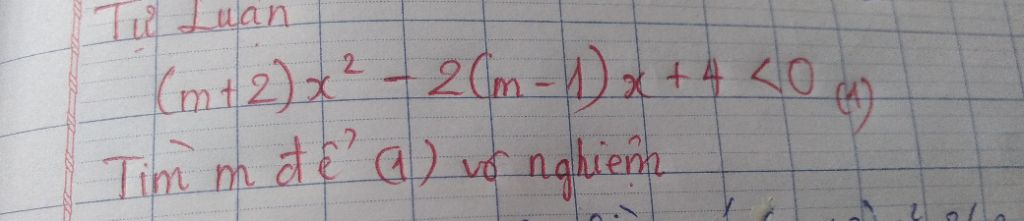 Tự Luận
(m+2)x² - 2(m-1)x + 4 < 0 (1)
Tìm m để (1) vô nghiệm